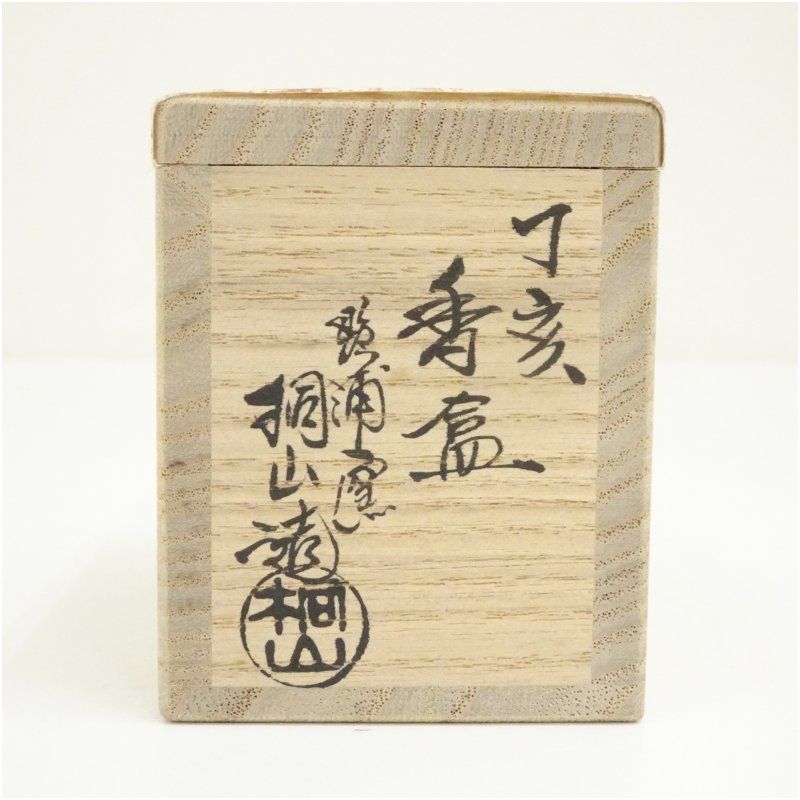 丁亥
香盒
勢浦窯
桐山造
桐山